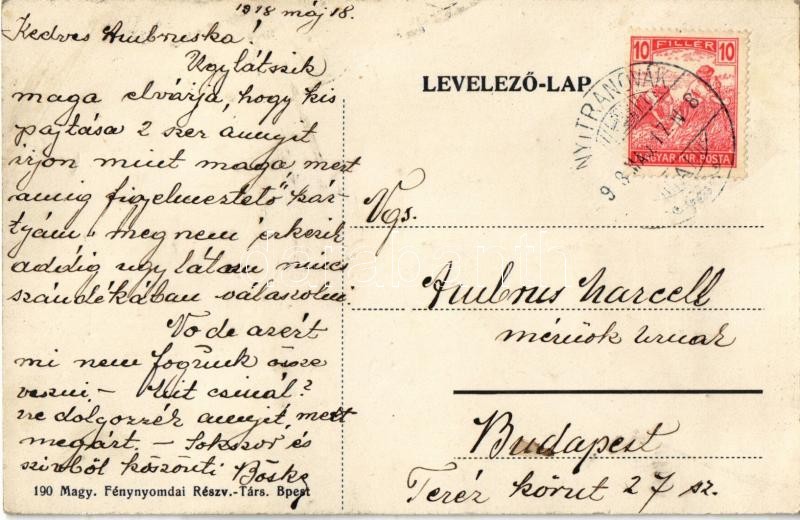 1918 máj 18.
Kedves Ambruska!
Ugylátszik
maga elvárja, hogy kis
pajtása 2 szer annyit
irjon mint maga, mert
amig figyelmeztető kár-
tyám meg nem érkezik
addig ugy látom nincs
szándékában válaszolni.
No de azért
mi nem fogunk össze
veszni, – Mit csinál?
ne dolgozzék annyit, mert
megárt. – Sokszor és
szivből köszönti Böske
190 Magy. Fénynyomdai Részv.-Társ. Bpest
LEVELEZŐ-LAP
10 FILLÉR 10
MAGYAR KIR. POSTA
NYITRANOVÁK
Ngs.
Ambrus Marcell
mérnök urnak
Budapest
Teréz körut 27 sz.